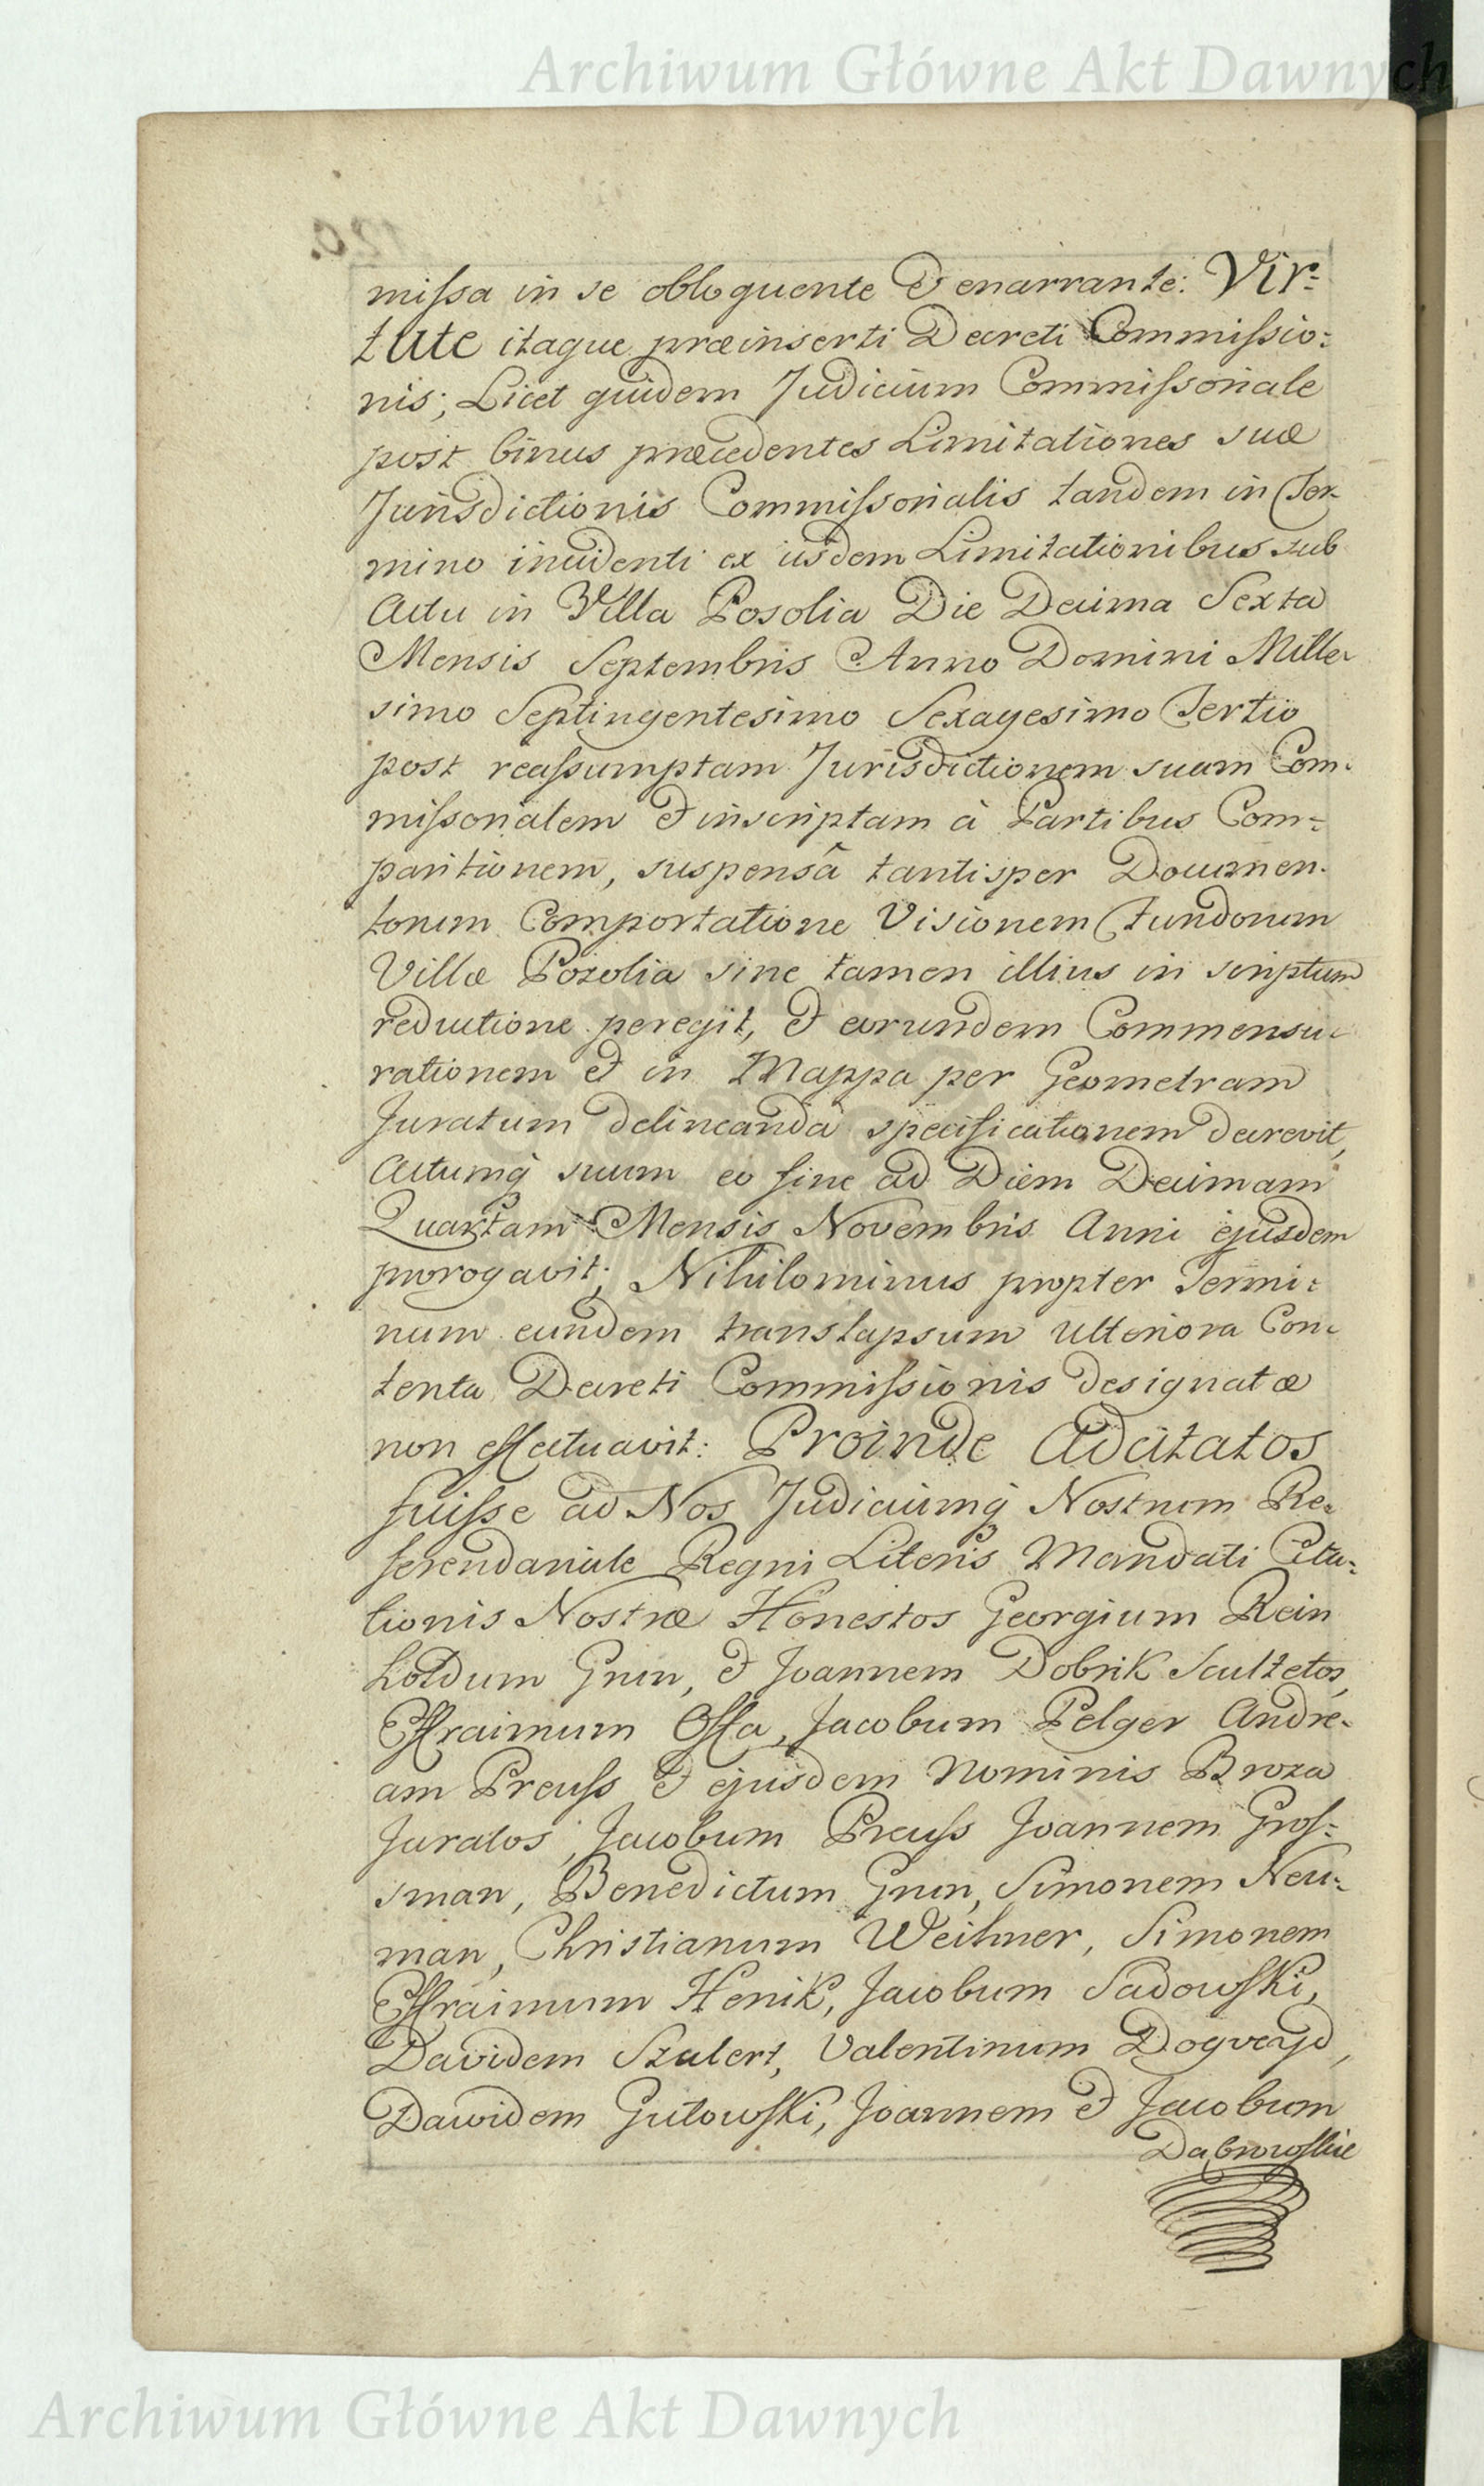 Archiwum Główne Akt Dawnych
missa in se obloquente & enarrante: Vir=
tute itaque præinserti Decreti Commissio:
nis; Licet quidem Judicium Commissoriale
post binus præcedentes Limitationes suæ
Jurisdictionis Commissorialis tandem in Ter-
mino incidenti ex iisdem Limitationibus sub
Actu in Villa Posolia Die Decima Sexta
Mensis Septembris Anno Domini Mille-
simo Septingentesimo Sexagesimo Tertio
post reassumptam Jurisdictionem suam Com-
missorialem & inscriptam à Partibus Com=
paritionem, suspensâ tantisper Documen-
torum Comportatione Visionem Fundorum
Villæ Pozolia sine tamen illius in scriptum
reductione peregit, & eorundem Commensu-
rationem & in Mappa per Geometram
Juratum delineanda specificationem decrevit,
Actumq́ suum eo fine ad Diem Decimam
Quartam Mensis Novembris Anni ejusdem
prorogavit; Nihilominus propter Termi=
num eundem translapsum ulteriora Con-
tenta Decreti Commissionis designatæ
non effectuavit: Proinde Adcitatos
fuisse ad Nos Judiciumq́ Nostrum Re-
ferendariale Regni Literis Mandati Cita-
tionis Nostræ Honestos Georgium Rein
holdum Grun, & Joannem Dobrik Scultetos,
Effraimum Offa, Jacobum Pelger Andre-
am Preuss & ejusdem Nominis Broza
Juratos, Jacobum Preuss Joannem Gros=
sman, Benedictum Grun, Simonem Neu=
man, Christianum Weihner, Simonem
Effraimum Henik, Jacobum Sadowski,
Davidem Szulert, Valentinum Dogveyd,
Dawidem Gutowski, Joannem & Jacobum
Dąbrowskie
Archiwum Główne Akt Dawnych